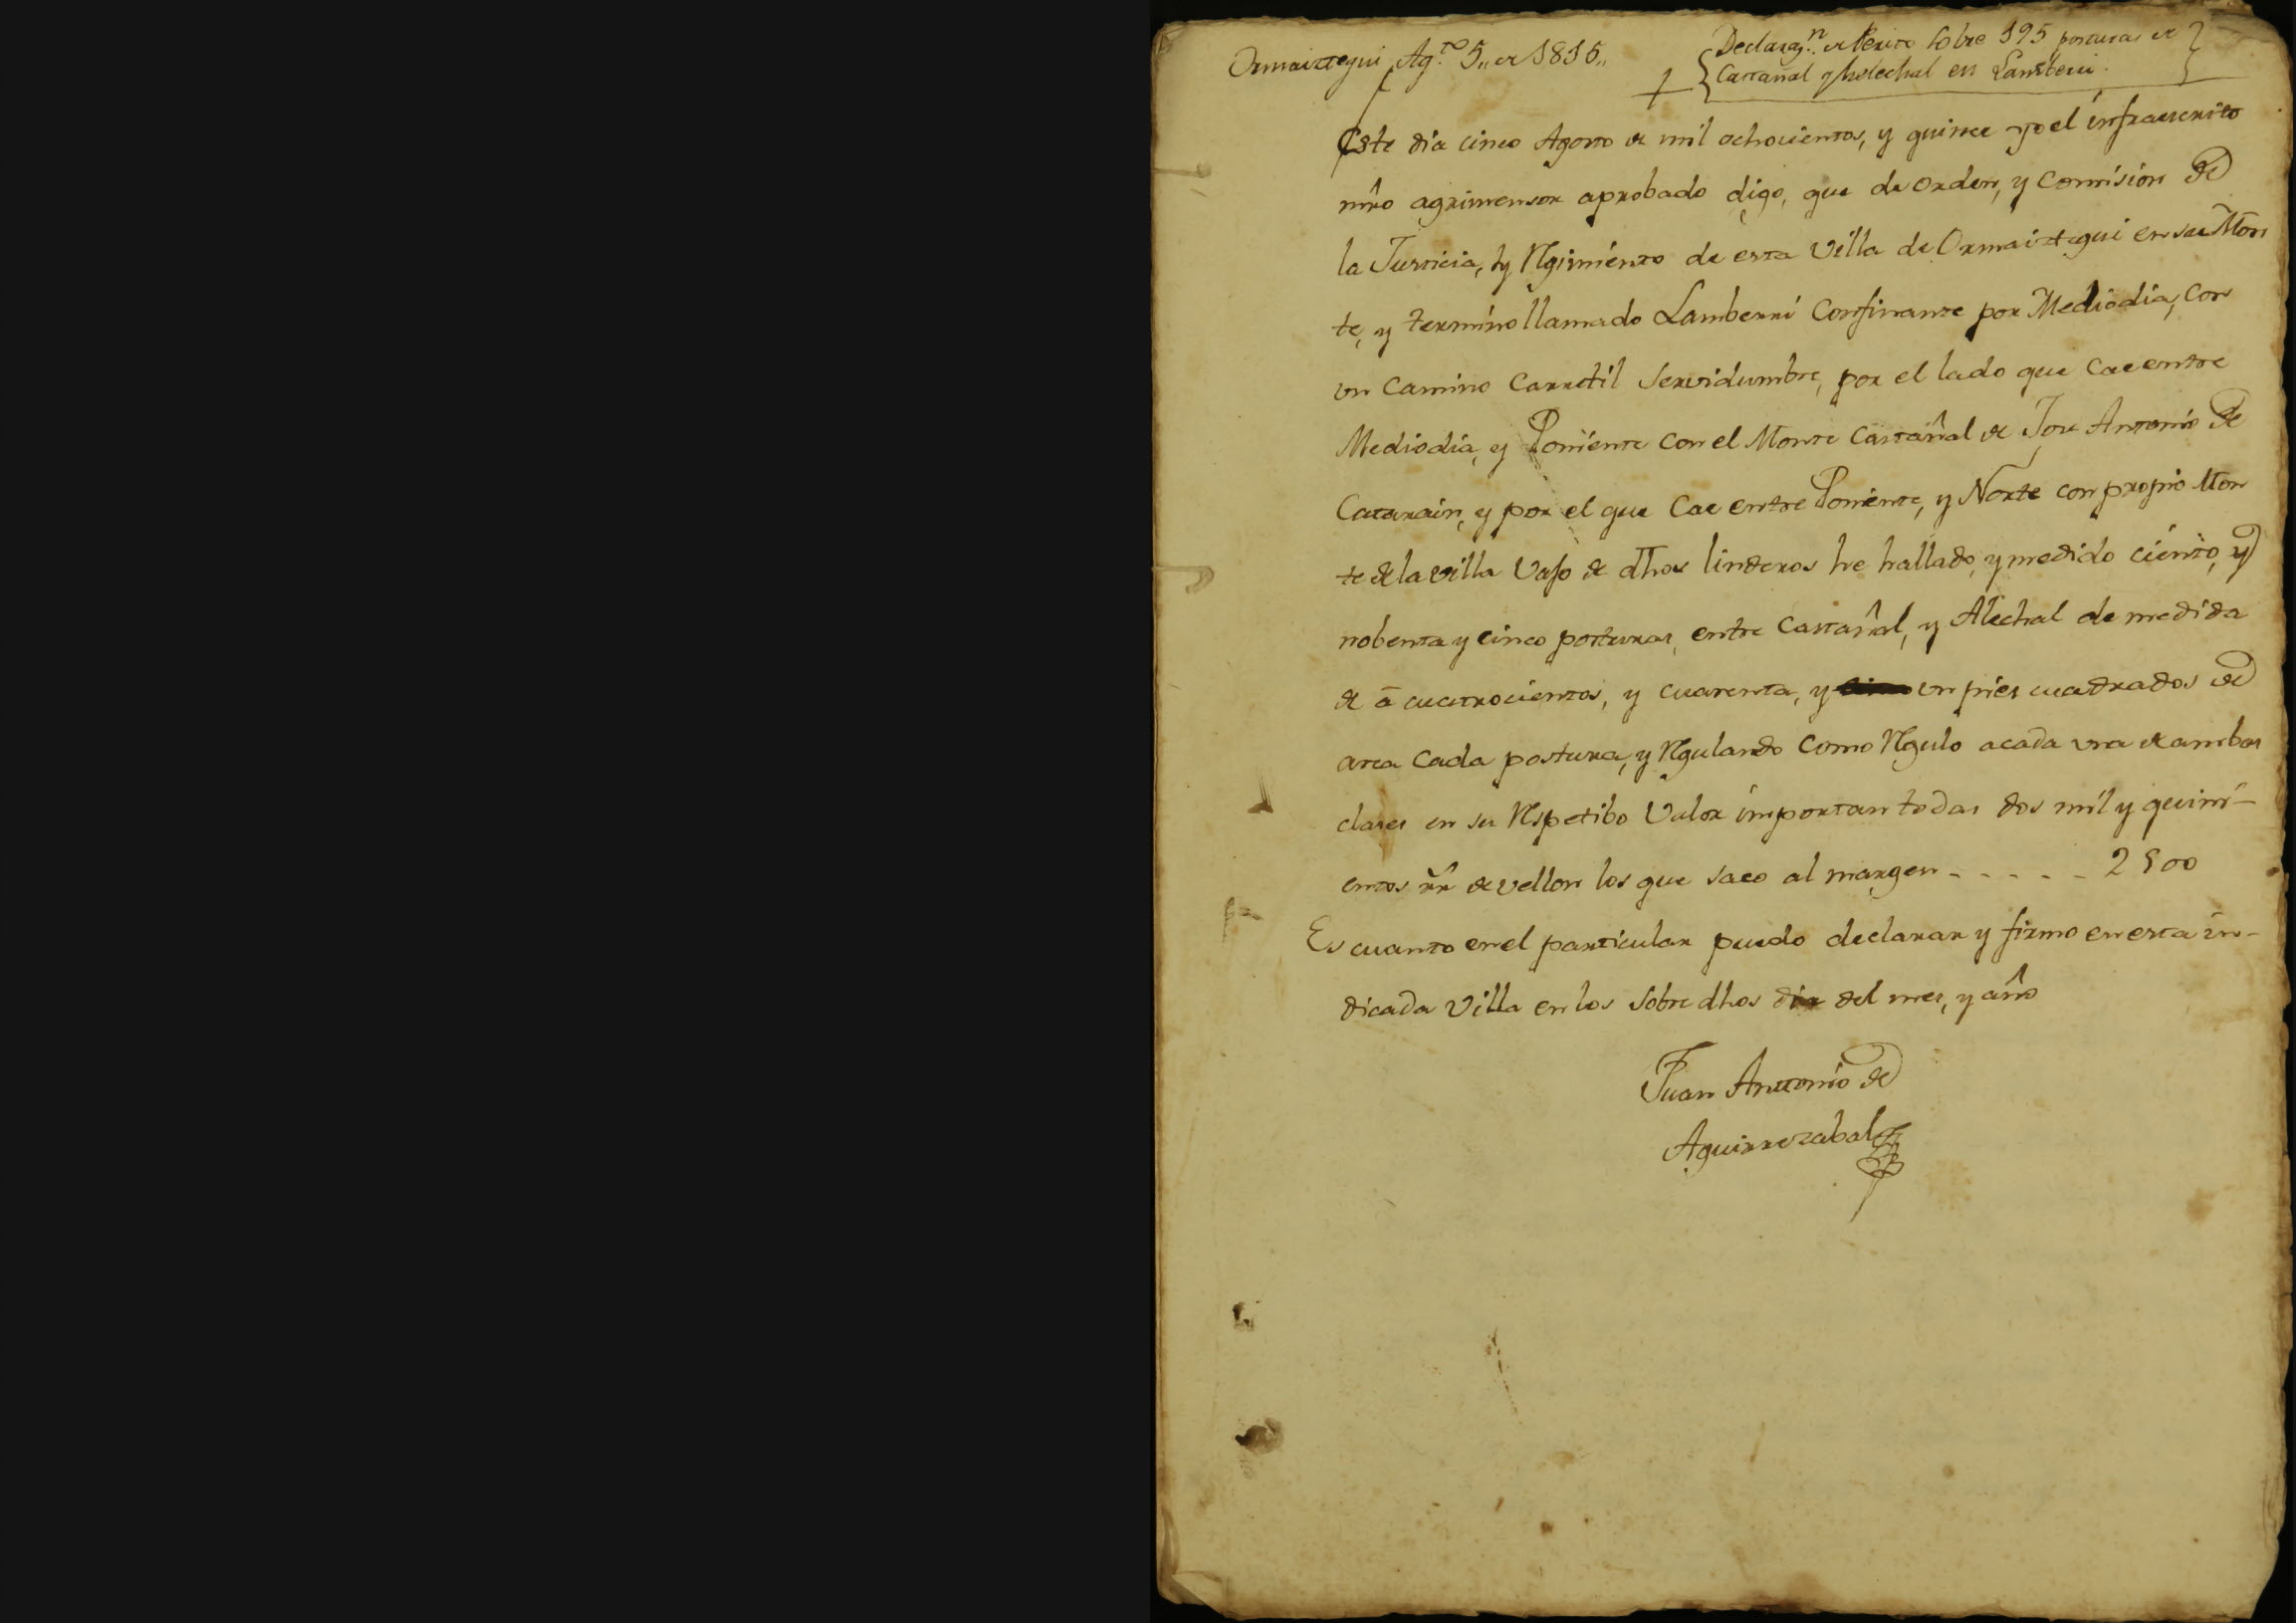 Ormaiztegui Ag.to 5,, de 1815,,
Declaraz.n de Perito sobre 195 posturas de
Castañal y helechal en Lamberri.
Este dia cinco Agosto de mil ochocientos, y quince yo el infraescrito
mro agrimensor aprobado digo, que de orden, y Comision de
la Justicia, y Regimiento de esta Villa de Ormaiztegui en su Mon
te, y termino llamado Lamberri Confinante por Mediodia, con
vn Camino Carretil servidumbre, por el lado que Cae entre
Mediodia, y Poniente con el Monte Castañal de Jose Antonio de
Catarain, y por el que Cae entre Poniente, y Norte con propio Mon
te de la villa Vajo de dhos linderos he hallado, y medido ciento, y
nobenta y cinco posturas, entre Castañal, y Alechal de medida
de â cuatrocientos, y cuarenta, y vn pies cuadrados de
area Cada postura, y Regulando Como Regulo acada vna de ambas
clases en su Respetibo Valor importan todas dos mil y quini-
entos rr de vellon los que saco al margen - - - - - 2500
Es cuanto en el particular puedo declarar y firmo en esta in-
dicada Villa en los sobre dhos dia del mes, y año
Juan Antonio de
Aguirrezabal